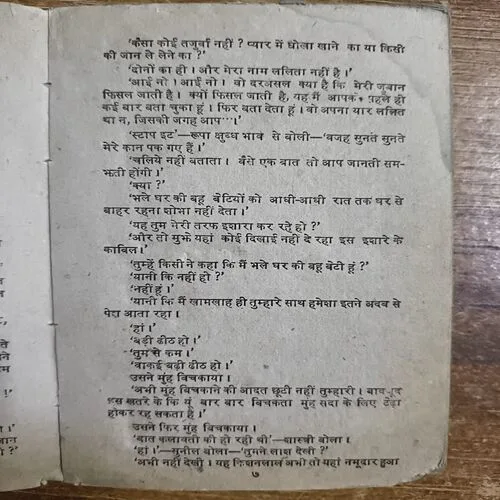 'कैसा कोई तजुर्बा नहीं ? प्यार में धोखा खाने का या किसी
की जान ले लेने का ?'
'दोनों का ही । और मेरा नाम ललिता नहीं है ।'
'आई नो । आई नो । वो दरअसल क्या है कि मेरी जुबान
फिसल जाती है । क्यों फिसल जाती है, यह मैं आपको पहले ही
कई बार बता चुका हूं । फिर बता देता हूं । वो अपना यार ललित
था न, जिसकी जगह आप···।'
'स्टाप इट'—रूपा क्षुब्ध भाव से बोली—'वजह सुनते सुनते
मेरे कान पक गए हैं ।'
'चलिये नहीं बताता । वैसे एक बात तो आप जानती सम-
झती होंगी ।'
'क्या ?'
'भले घर की बहू बेटियों को आधी-आधी रात तक घर से
बाहर रहना शोभा नहीं देता ।'
'यह तुम मेरी तरफ इशारा कर रहे हो ?'
'और तो मुझे यहां कोई दिखाई नहीं दे रहा इस इशारे के
काबिल ।'
'तुम्हें किसी ने कहा कि मैं भले घर की बहू बेटी हूं ?'
'यानी कि नहीं हो ?'
'नहीं हूं ।'
'यानी कि मैं खामखाह ही तुम्हारे साथ हमेशा इतने अदब से
पेश आता रहा ।
'हां ।'
'बड़ी ढीठ हो ।'
'तुम से कम ।'
'वाकई बड़ी ढीठ हो ।'
उसने मुंह बिचकाया ।
'अभी मुंह बिचकाने की आदत छूटी नहीं तुम्हारी । बावजूद
इस खतरे के कि यूं बार बार बिचकता मुंह सदा के लिए टेढ़ा
होकर रह सकता है ।'
उसने फिर मुंह बिचकाया ।
'बात कलावती की हो रही थी'—शास्त्री बोला ।
'हां ।'—सुनील बोला—'तुमने लाश देखी ?'
'अभी नहीं देखी । यह किशनलाल अभी तो यहां नमूदार हुआ
७